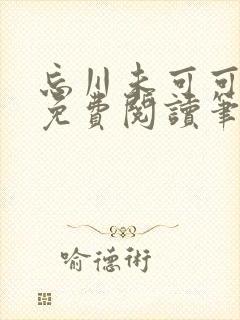 忘川未可可
免費閱讀筆
喻德術